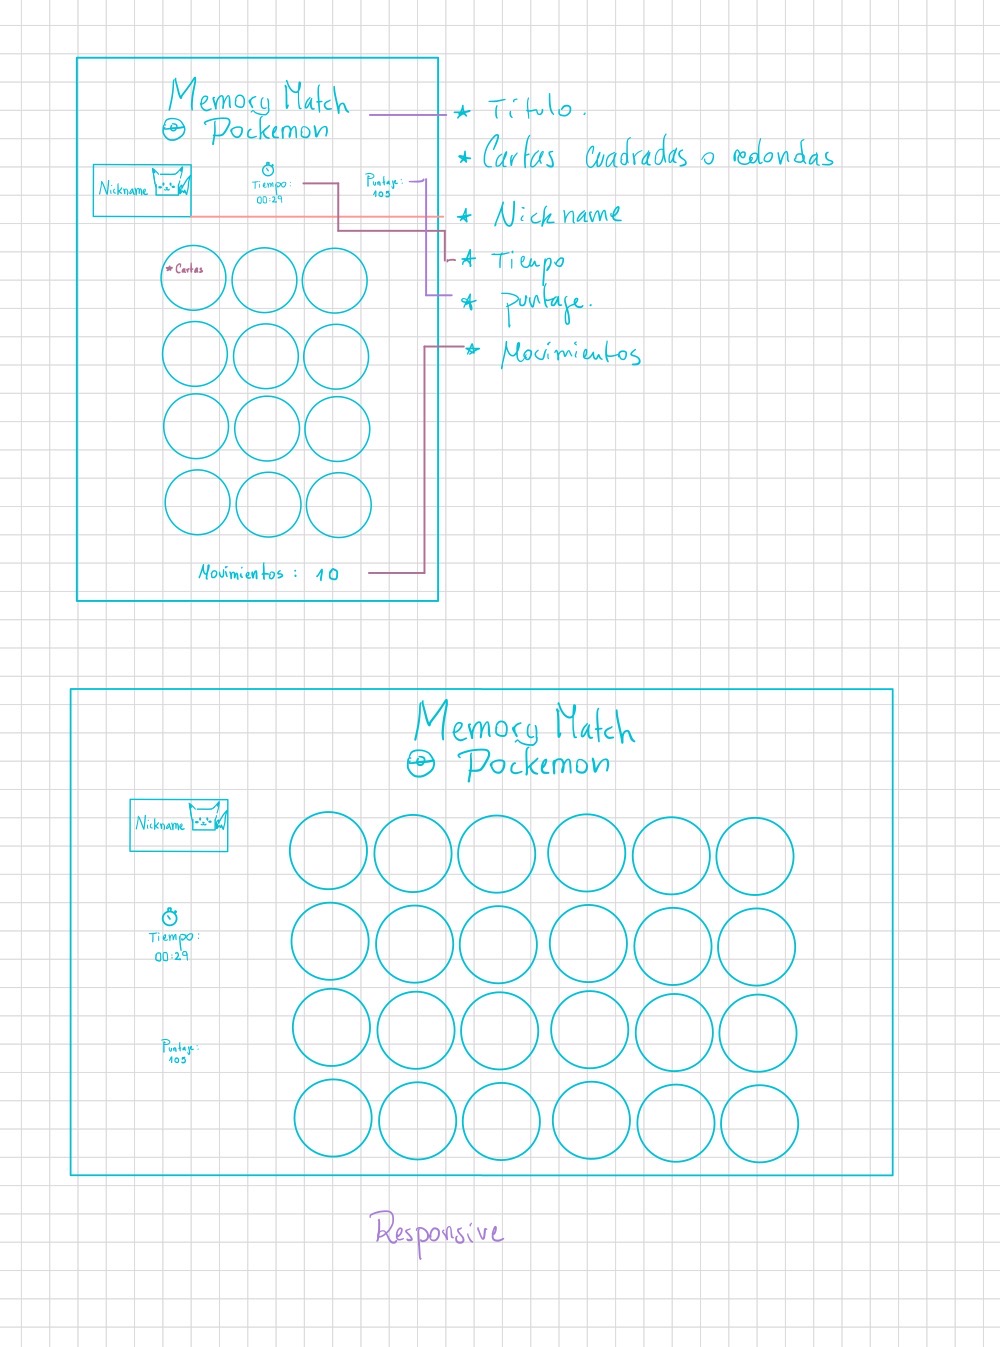 Memory Match
Pockemon
Nickname
Tiempo:
00:29
Puntaje:
105
* Cartas
Movimientos : 10
* Titulo.
* Cartas cuadradas o redondas
* Nickname
* Tiempo
* puntage.
* Movimientos
Memory Match
Pockemon
Nickname
Tiempo:
00:29
Puntaje:
105
Responsive